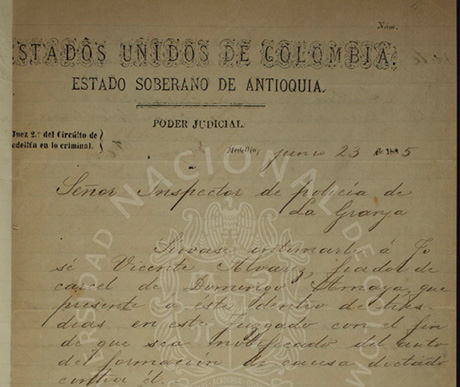 Núm.
ESTADOS UNIDOS DE COLOMBIA.
ESTADO SOBERANO DE ANTIOQUIA.
PODER JUDICIAL.
Juez 2.º del Circuito de
Medellín en lo criminal.
Medellín, junio 23 de 1885
Señor Inspector de policía de
La Granja
Sírvase intimarle á Jo
sé Vicente Alvarez, fiador de
carcel de Domingo Amaya, que
presente a éste dentro de tres
dias, en este Juzgado con el fin
de que sea notificado del auto
de formación de causa dictado
contra él.
UNIVERSIDAD NACIONAL DE COLOMBIA